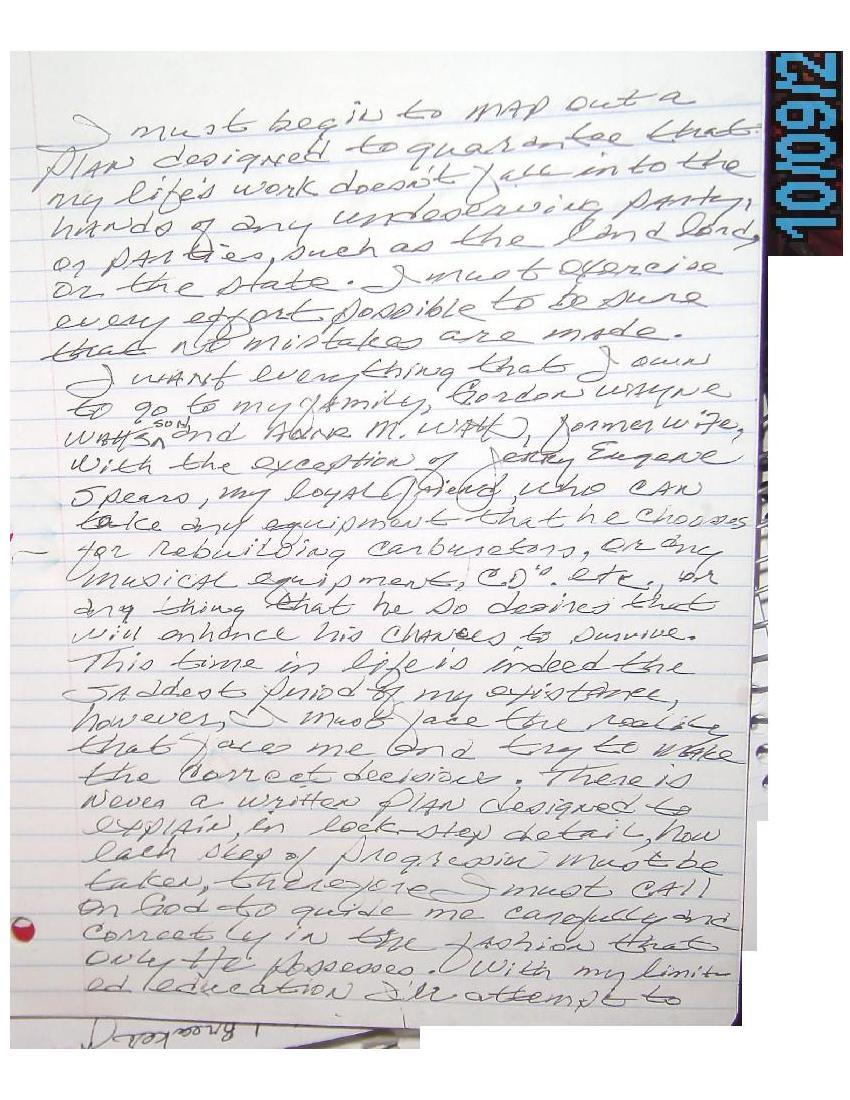 I must begin to map out a
plan designed to guarantee that
my life's work doesn't fall into the
hands of any undeserving party,
or parties, such as the land lord,
or the state. I must exercise
every effort possible to be sure
that no mistakes are made.
I want everything that I own
to go to my family, Gordon Wayne
Watts, son, and Anne M. Watts, former wife,
with the exception of Jerry Eugene
Spears, my loyal friend, who can
take any equipment that he chooses
for rebuilding carburetors, or any
musical equipment, C.D's. etc., or
any thing that he so desires that
will enhance his chances to survive.
This time in life is indeed the
saddest period of my existance,
however, I must face the reality
that faces me and try to make
the correct decisions. There is
never a written plan designed to
explain, in lock-step detail, how
each step of progression must be
taken, therefore I must call
on God to guide me carefully and
correctly in the fashion that
only He possesses. With my limit-
ed education I'll attempt to
10/09/2